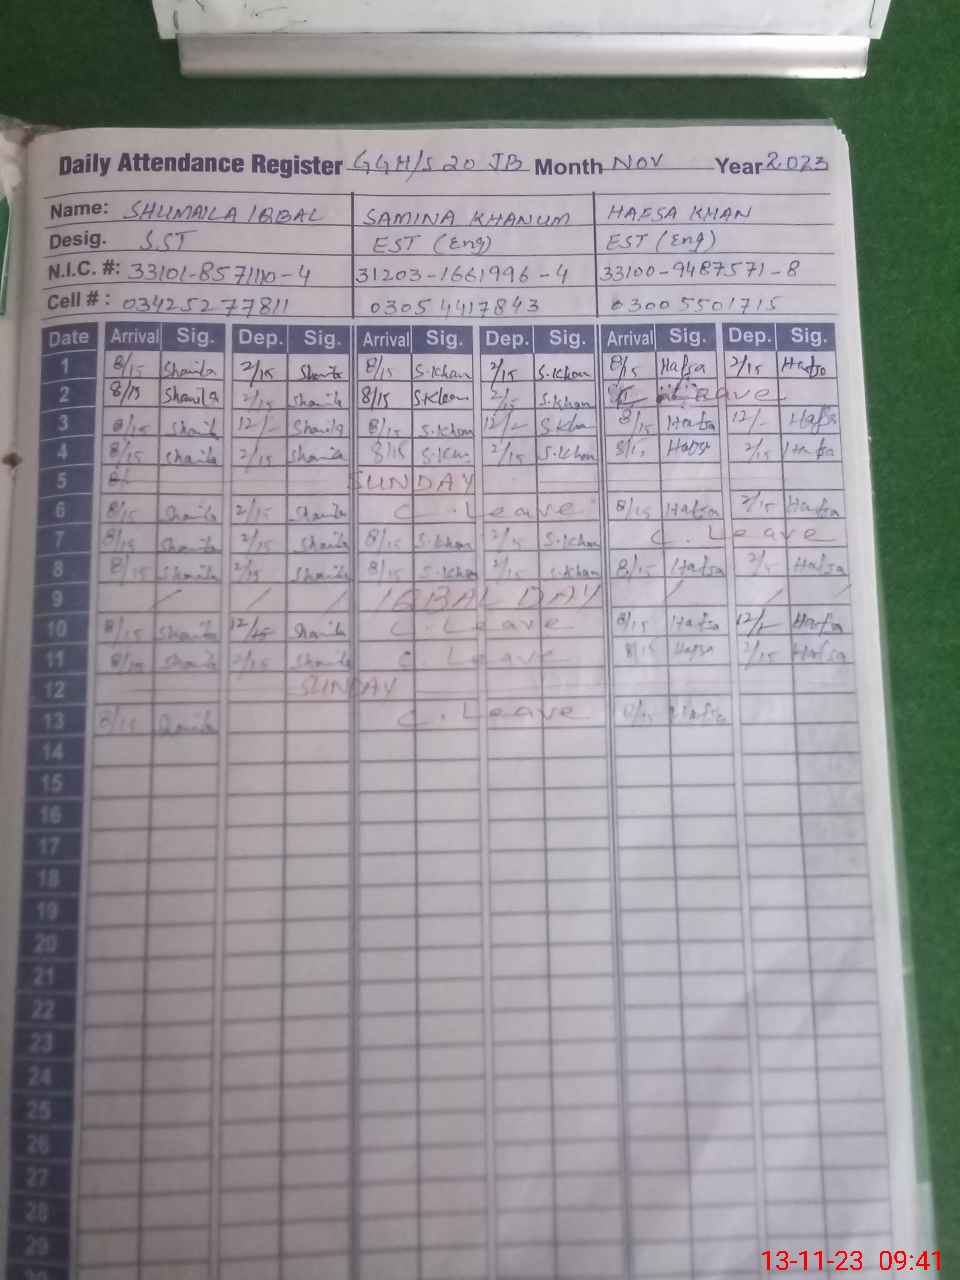 Daily Attendance Register GGH/S 20 JB Month NOV Year 2023
Name: SHUMAILA IQBAL SAMINA KHANUM HAFSA KHAN
Desig. S.ST EST (Eng) EST (Eng)
N.I.C. #: 33101-857110-4 31203-1661996-4 33100-9487571-8
Cell #: 03425277811 03054417843 03005501715
Date Arrival Sig. Dep. Sig. Arrival Sig. Dep. Sig. Arrival Sig. Dep. Sig.
1 8/15 2/15 8/15 S.Khan 2/15 S.Khan 8/15 Hafsa 2/15 Hafsa
2 8/15 2/15 8/15 S.Khan 2/15 S.Khan Leave
3 8/15 12/- 8/15 S.Khan 12/- S.Khan 8/15 Hafsa 12/- Hafsa
4 8/15 2/15 8/15 2/15 S.Khan Hafsa 2/15 Hafsa
5 SUNDAY
6 8/15 2/15 C. Leave 8/15 Hafsa 2/15 Hafsa
7 8/15 2/15 8/15 S.Khan 2/15 S.Khan C. Leave
8 8/15 2/15 8/15 S.Khan 2/15 S.Khan 8/15 Hafsa Hafsa
9 / / / IQBAL DAY / / /
10 8/15 C. Leave 8/15 Hafsa 12/- Hafsa
11 8/15 2/15 C Leave 8/15 Hafsa 2/15 Hafsa
12 SUNDAY
13 8/15 C. Leave Hafsa
14
15
16
17
18
19
20
21
22
23
24
25
26
27
28
29
13-11-23 09:41